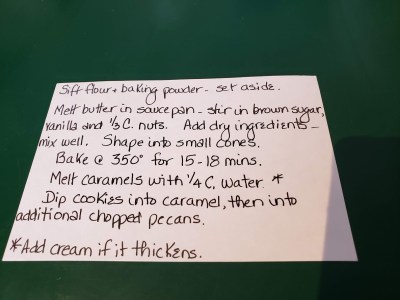 Sift flour + baking powder - set aside.
Melt butter in saucepan - stir in brown sugar,
vanilla and 1/3 C. nuts. Add dry ingredients -
mix well. Shape into small cones.
Bake @ 350° for 15-18 mins.
Melt caramels with 1/4 C. water *
Dip cookies into caramel, then into
additional chopped pecans.
*Add cream if it thickens.